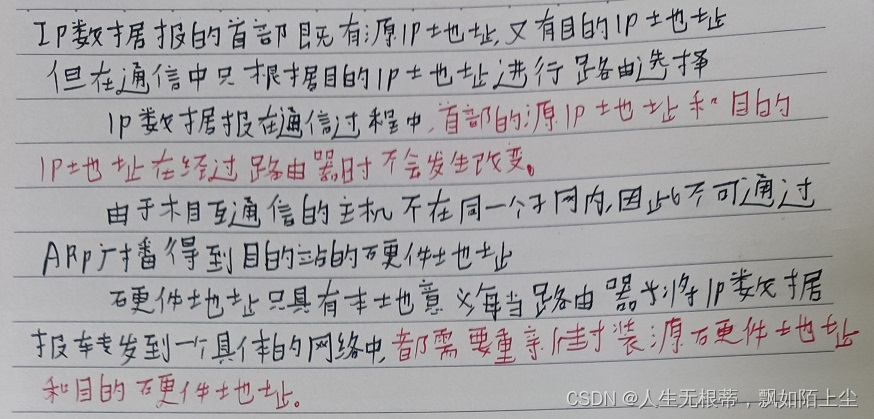 IP数据报的首部既有源IP地址,又有目的IP地址
但在通信中只根据目的IP地址进行路由选择
IP数据报在通信过程中,首部的源IP地址和目的
IP地址在经过路由器时不会发生改变。
由于相互通信的主机不在同一个子网内,因此不可通过
ARP广播得到目的站的硬件地址
硬件地址只具有本地意义,每当路由器将IP数据
报转发到一个具体的网络中,都需要重新封装源硬件地址
和目的硬件地址。
CSDN @人生无根蒂,飘如陌上尘